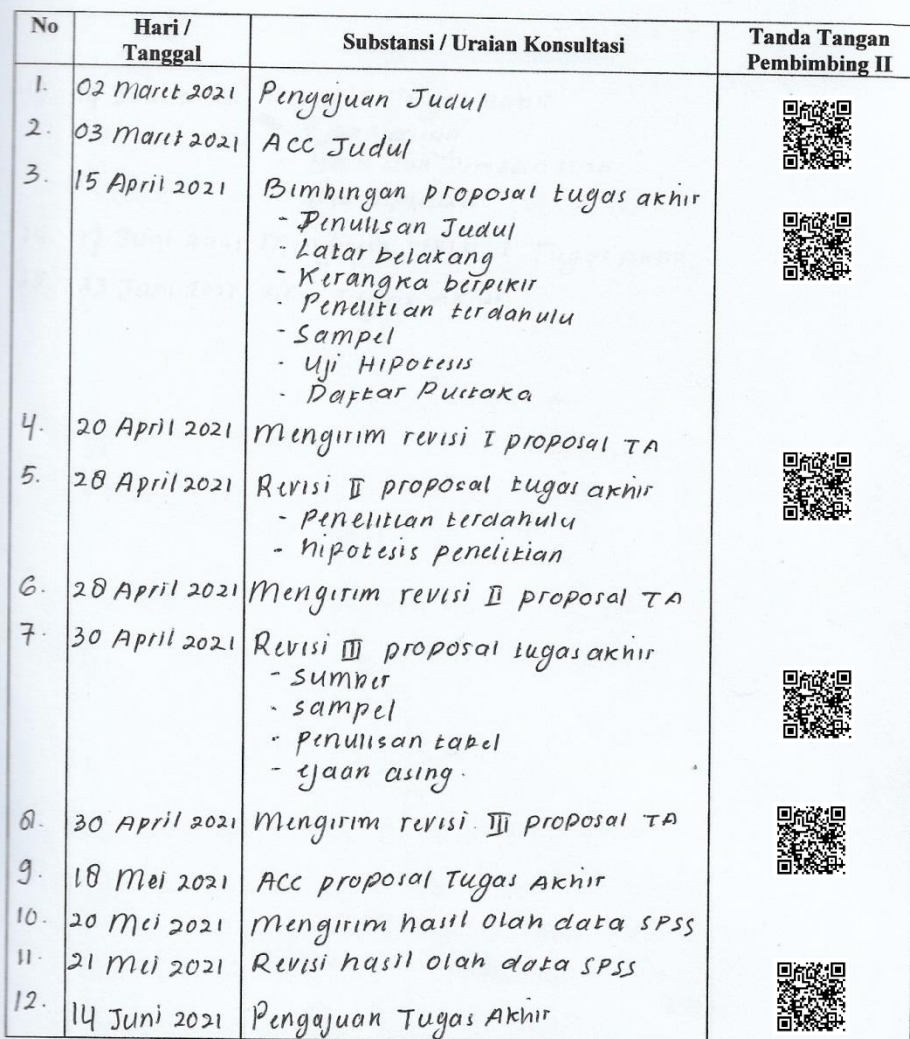 No Hari / Tanggal Substansi / Uraian Konsultasi Tanda Tangan Pembimbing II
1. 02 Maret 2021 Pengajuan Judul
2. 03 Maret 2021 ACC Judul
3. 15 April 2021 Bimbingan proposal tugas akhir
- Penulisan Judul
- Latar belakang
- Kerangka berpikir
- Penelitian terdahulu
- Sampel
- Uji Hipotesis
- Daftar Pustaka
4. 20 April 2021 Mengirim revisi I proposal TA
5. 28 April 2021 Revisi II proposal tugas akhir
- Penelitian terdahulu
- hipotesis penelitian
6. 28 April 2021 Mengirim revisi II proposal TA
7. 30 April 2021 Revisi III proposal tugas akhir
- sumber
- sampel
- penulisan tabel
- ejaan asing.
8. 30 April 2021 Mengirim revisi III proposal TA
9. 18 Mei 2021 ACC proposal Tugas Akhir
10. 20 Mei 2021 Mengirim hasil olah data SPSS
11. 21 Mei 2021 Revisi hasil olah data SPSS
12. 14 Juni 2021 Pengajuan Tugas Akhir